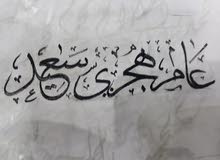 عام هجري سعيد